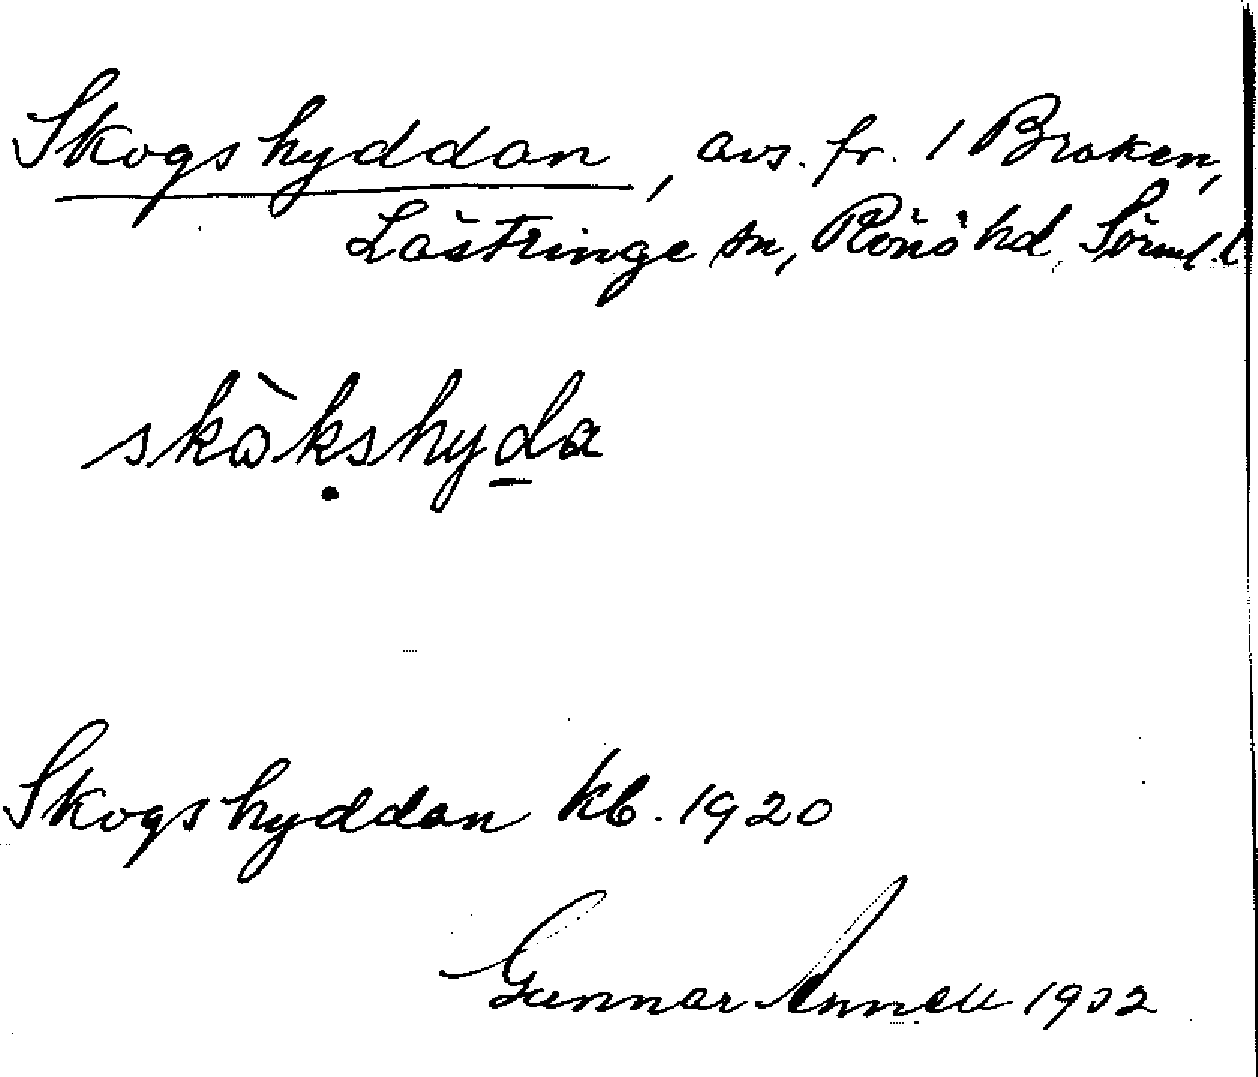 Skogshyddan, avs. fr. 1 Broken,
Lästringe sn, Rönö hd, Sörml. l
skåkshyda
Skogshyddan kb. 1920
Gunnar 1932